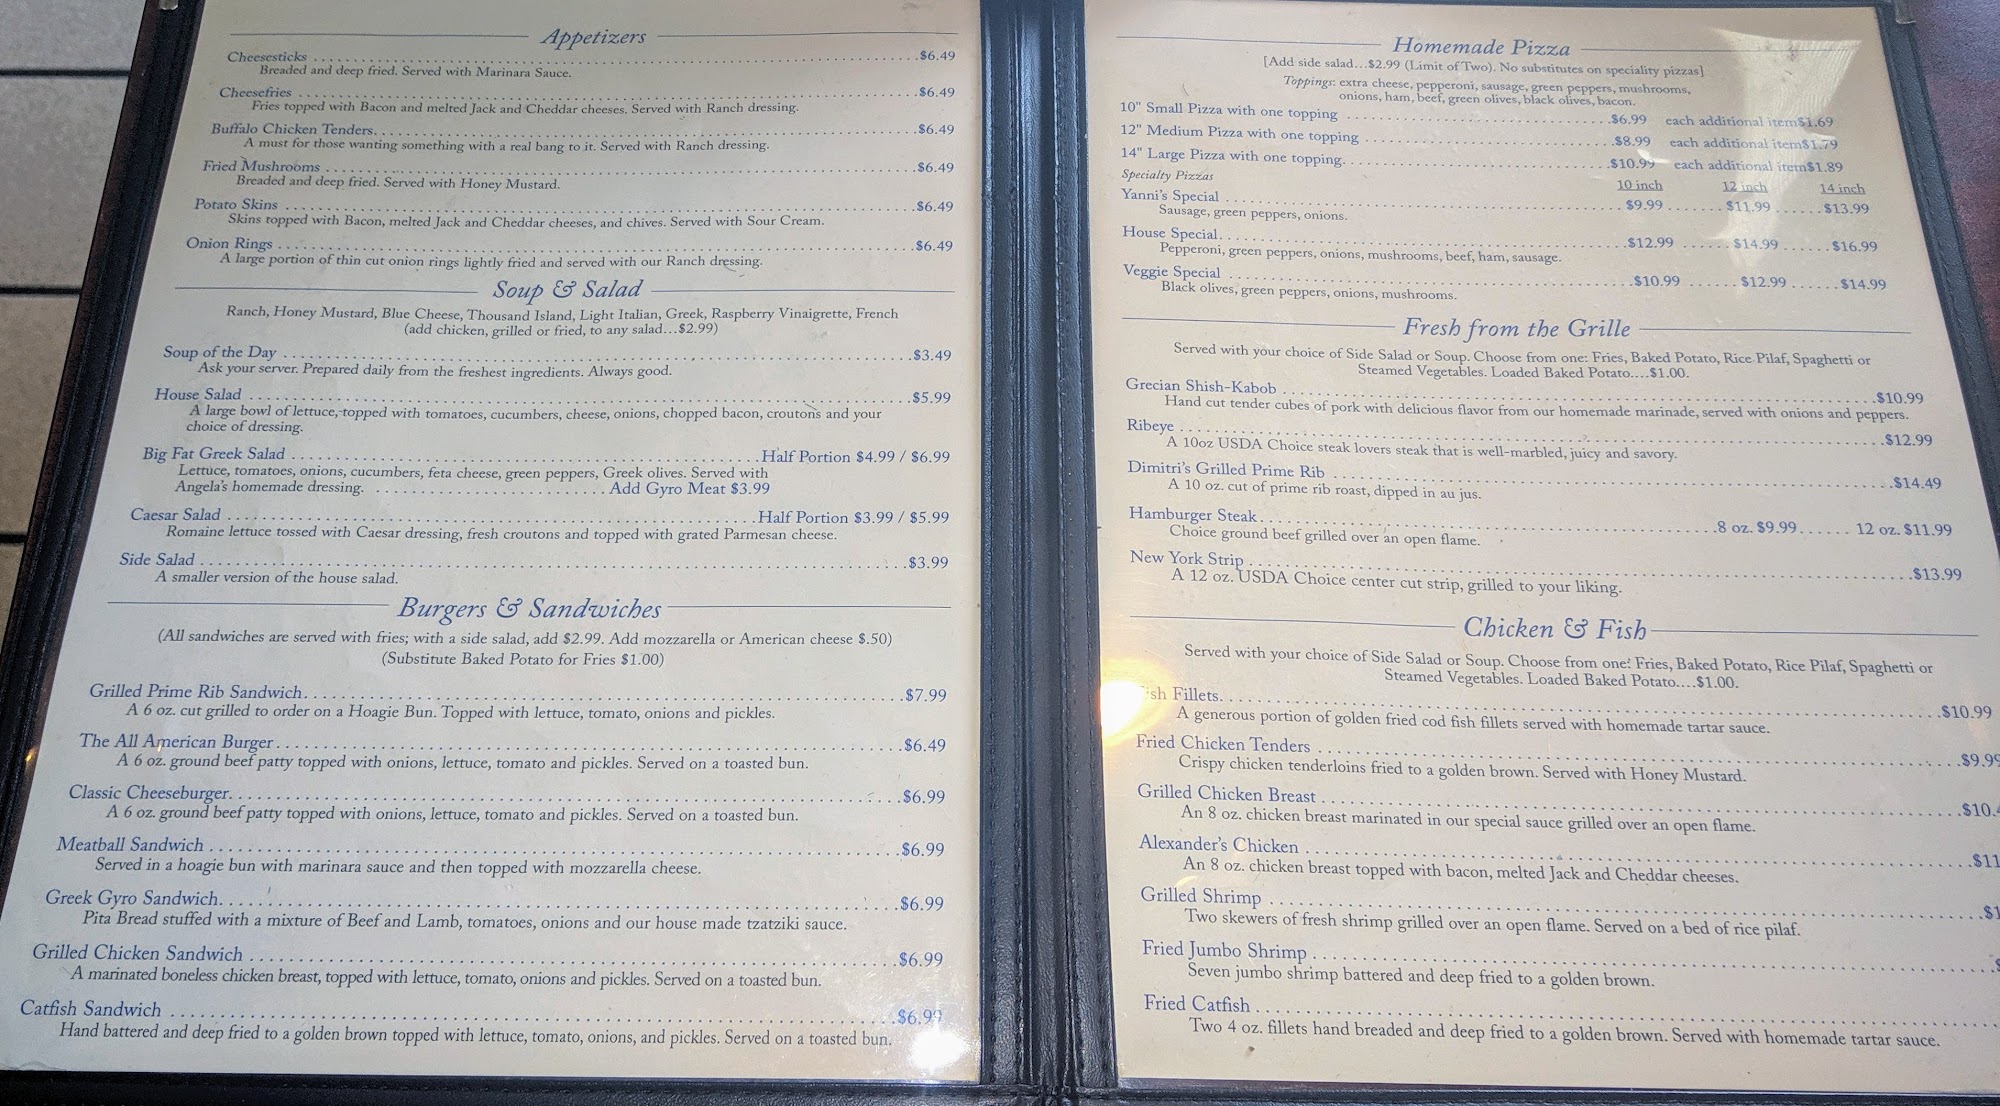 Appetizers
Cheesesticks $6.49
Breaded and deep fried. Served with Marinara Sauce.
Cheesefries $6.49
Fries topped with Bacon and melted Jack and Cheddar cheeses. Served with Ranch dressing.
Buffalo Chicken Tenders $6.49
A must for those wanting something with a real bang to it. Served with Ranch dressing.
Fried Mushrooms $6.49
Breaded and deep fried. Served with Honey Mustard.
Potato Skins $6.49
Skins topped with Bacon, melted Jack and Cheddar cheeses, and chives. Served with Sour Cream.
Onion Rings $6.49
A large portion of thin cut onion rings lightly fried and served with our Ranch dressing.
Soup & Salad
Ranch, Honey Mustard, Blue Cheese, Thousand Island, Light Italian, Greek, Raspberry Vinaigrette, French
(add chicken, grilled or fried, to any salad...$2.99)
Soup of the Day $3.49
Ask your server. Prepared daily from the freshest ingredients. Always good.
House Salad $5.99
A large bowl of lettuce, topped with tomatoes, cucumbers, cheese, onions, chopped bacon, croutons and your
choice of dressing.
Big Fat Greek Salad Half Portion $4.99 / $6.99
Lettuce, tomatoes, onions, cucumbers, feta cheese, green peppers, Greek olives. Served with
Angela's homemade dressing. Add Gyro Meat $3.99
Caesar Salad Half Portion $3.99 / $5.99
Romaine lettuce tossed with Caesar dressing, fresh croutons and topped with grated Parmesan cheese.
Side Salad $3.99
A smaller version of the house salad.
Burgers & Sandwiches
(All sandwiches are served with fries; with a side salad, add $2.99. Add mozzarella or American cheese $.50)
(Substitute Baked Potato for Fries $1.00)
Grilled Prime Rib Sandwich $7.99
A 6 oz. cut grilled to order on a Hoagie Bun. Topped with lettuce, tomato, onions and pickles.
The All American Burger $6.49
A 6 oz. ground beef patty topped with onions, lettuce, tomato and pickles. Served on a toasted bun.
Classic Cheeseburger $6.99
A 6 oz. ground beef patty topped with onions, lettuce, tomato and pickles. Served on a toasted bun.
Meatball Sandwich $6.99
Served in a hoagie bun with marinara sauce and then topped with mozzarella cheese.
Greek Gyro Sandwich $6.99
Pita Bread stuffed with a mixture of Beef and Lamb, tomatoes, onions and our house made tzatziki sauce.
Grilled Chicken Sandwich $6.99
A marinated boneless chicken breast, topped with lettuce, tomato, onions and pickles. Served on a toasted bun.
Catfish Sandwich $6.99
Hand battered and deep fried to a golden brown topped with lettuce, tomato, onions, and pickles. Served on a toasted bun.
Homemade Pizza
[Add side salad...$2.99 (Limit of Two). No substitutes on speciality pizzas]
Toppings: extra cheese, pepperoni, sausage, green peppers, mushrooms,
onions, ham, beef, green olives, black olives, bacon.
10" Small Pizza with one topping $6.99 each additional item$1.69
12" Medium Pizza with one topping $8.99 each additional item$1.79
14" Large Pizza with one topping $10.99 each additional item$1.89
Specialty Pizzas 10 inch 12 inch 14 inch
Yanni's Special $9.99 $11.99 $13.99
Sausage, green peppers, onions.
House Special $12.99 $14.99 $16.99
Pepperoni, green peppers, onions, mushrooms, beef, ham, sausage.
Veggie Special $10.99 $12.99 $14.99
Black olives, green peppers, onions, mushrooms.
Fresh from the Grille
Served with your choice of Side Salad or Soup. Choose from one: Fries, Baked Potato, Rice Pilaf, Spaghetti or
Steamed Vegetables. Loaded Baked Potato....$1.00.
Grecian Shish-Kabob $10.99
Hand cut tender cubes of pork with delicious flavor from our homemade marinade, served with onions and peppers.
Ribeye $12.99
A 10oz USDA Choice steak lovers steak that is well-marbled, juicy and savory.
Dimitri's Grilled Prime Rib $14.49
A 10 oz. cut of prime rib roast, dipped in au jus.
Hamburger Steak 8 oz. $9.99 12 oz. $11.99
Choice ground beef grilled over an open flame.
New York Strip $13.99
A 12 oz. USDA Choice center cut strip, grilled to your liking.
Chicken & Fish
Served with your choice of Side Salad or Soup. Choose from one: Fries, Baked Potato, Rice Pilaf, Spaghetti or
Steamed Vegetables. Loaded Baked Potato....$1.00.
Fillets $10.99
A generous portion of golden fried cod fish fillets served with homemade tartar sauce.
Fried Chicken Tenders $9.99
Crispy chicken tenderloins fried to a golden brown. Served with Honey Mustard.
Grilled Chicken Breast $10.
An 8 oz. chicken breast marinated in our special sauce grilled over an open flame.
Alexander's Chicken $11
An 8 oz. chicken breast topped with bacon, melted Jack and Cheddar cheeses.
Grilled Shrimp $1
Two skewers of fresh shrimp grilled over an open flame. Served on a bed of rice pilaf.
Fried Jumbo Shrimp
Seven jumbo shrimp battered and deep fried to a golden brown.
Fried Catfish
Two 4 oz. fillets hand breaded and deep fried to a golden brown. Served with homemade tartar sauce.